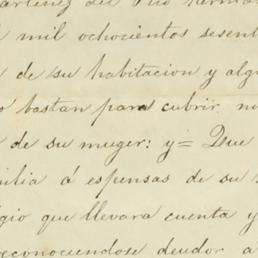 artinez del Rio herma
mil ochocientos sesent
de su habitacion y alg
s bastan para cubrir n
de su muger: y= Que
ilia á espensas de su
gio que llevara cuenta y
econociendose deudor a